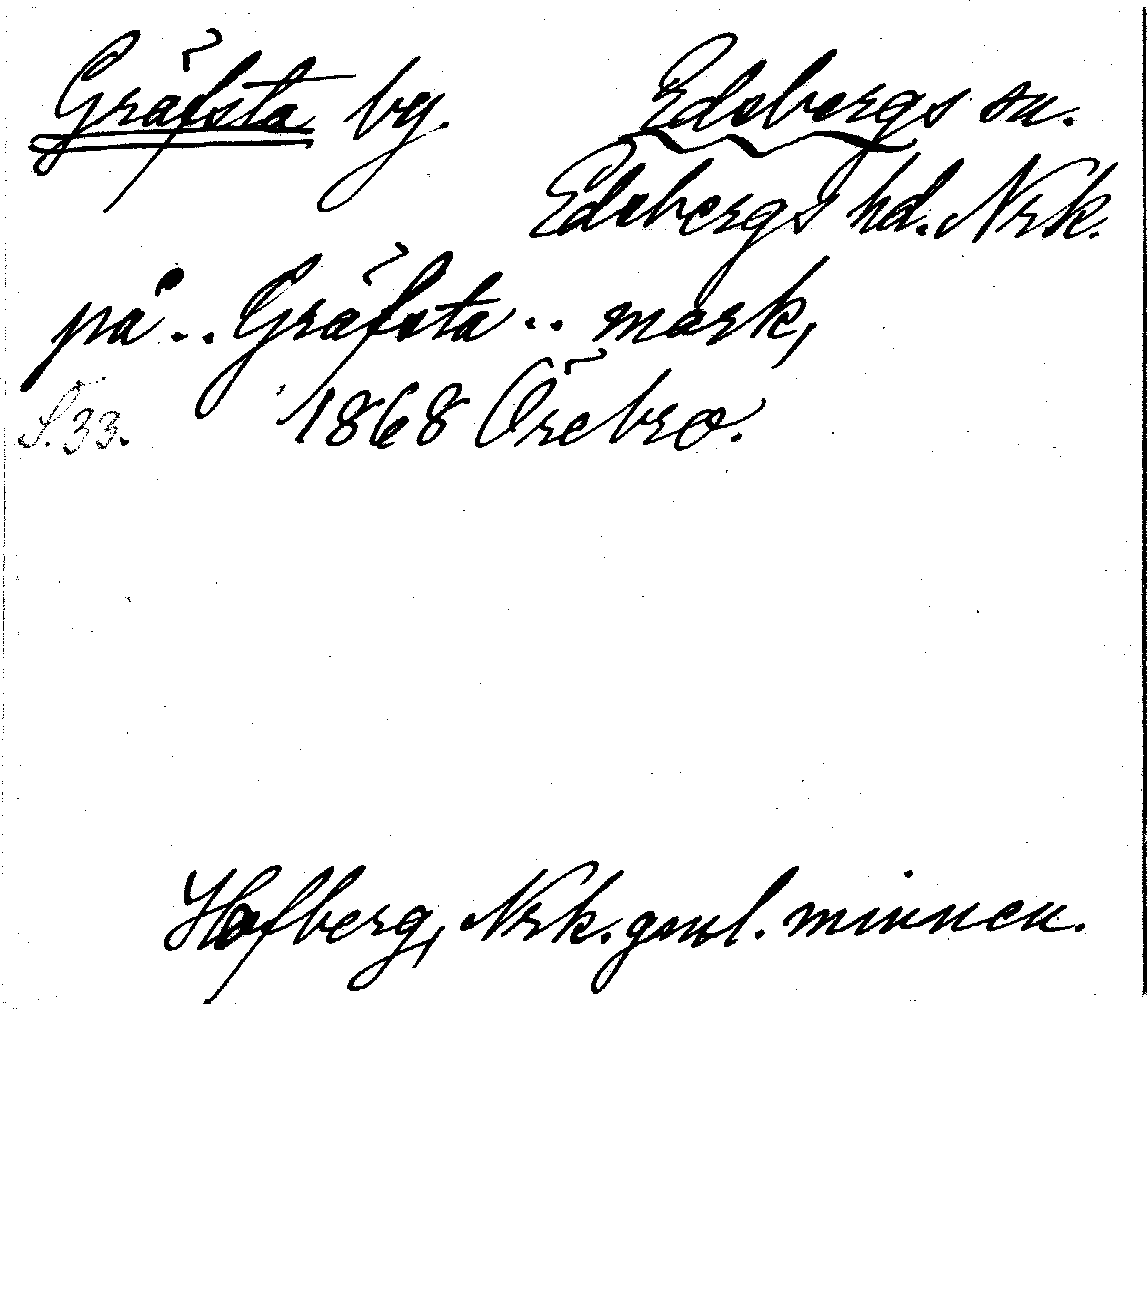 Gräfsta by. Edsbergs sn.
Edsbergs hd. Nrk.
på .. Gräfsta .. mark,
S. 33. 1868 Örebro.
Hofberg, Nrk. gml. minnen.